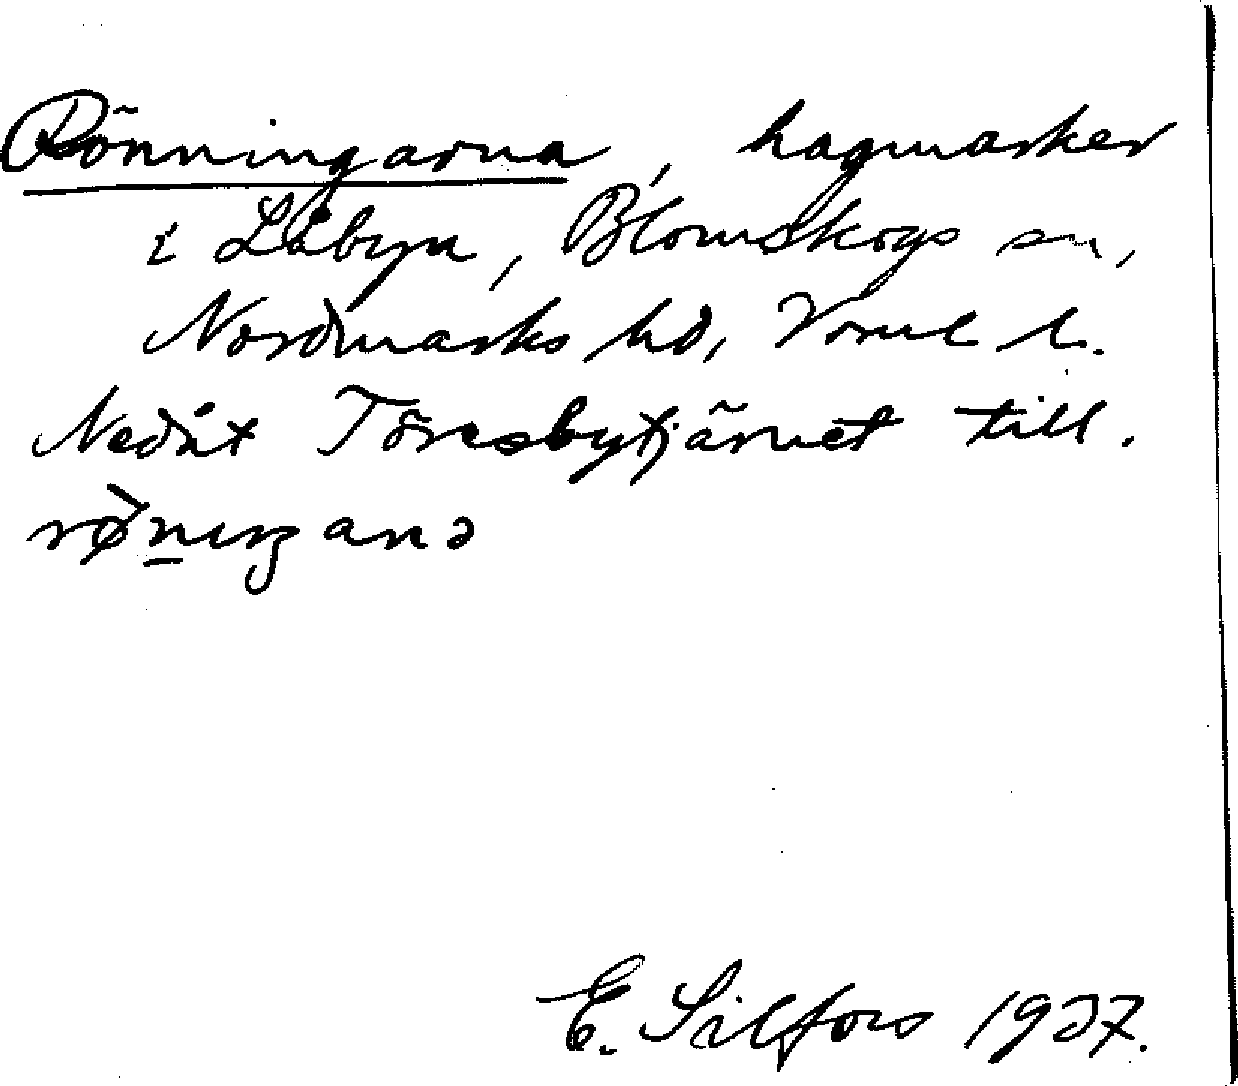 Rönningarna, hagmarker
i Låbyn, Blomskogs sn,
Nordmarks hd, Vrml l.
Nedåt Töresbytjärnet till.
E. Silfors 1937.